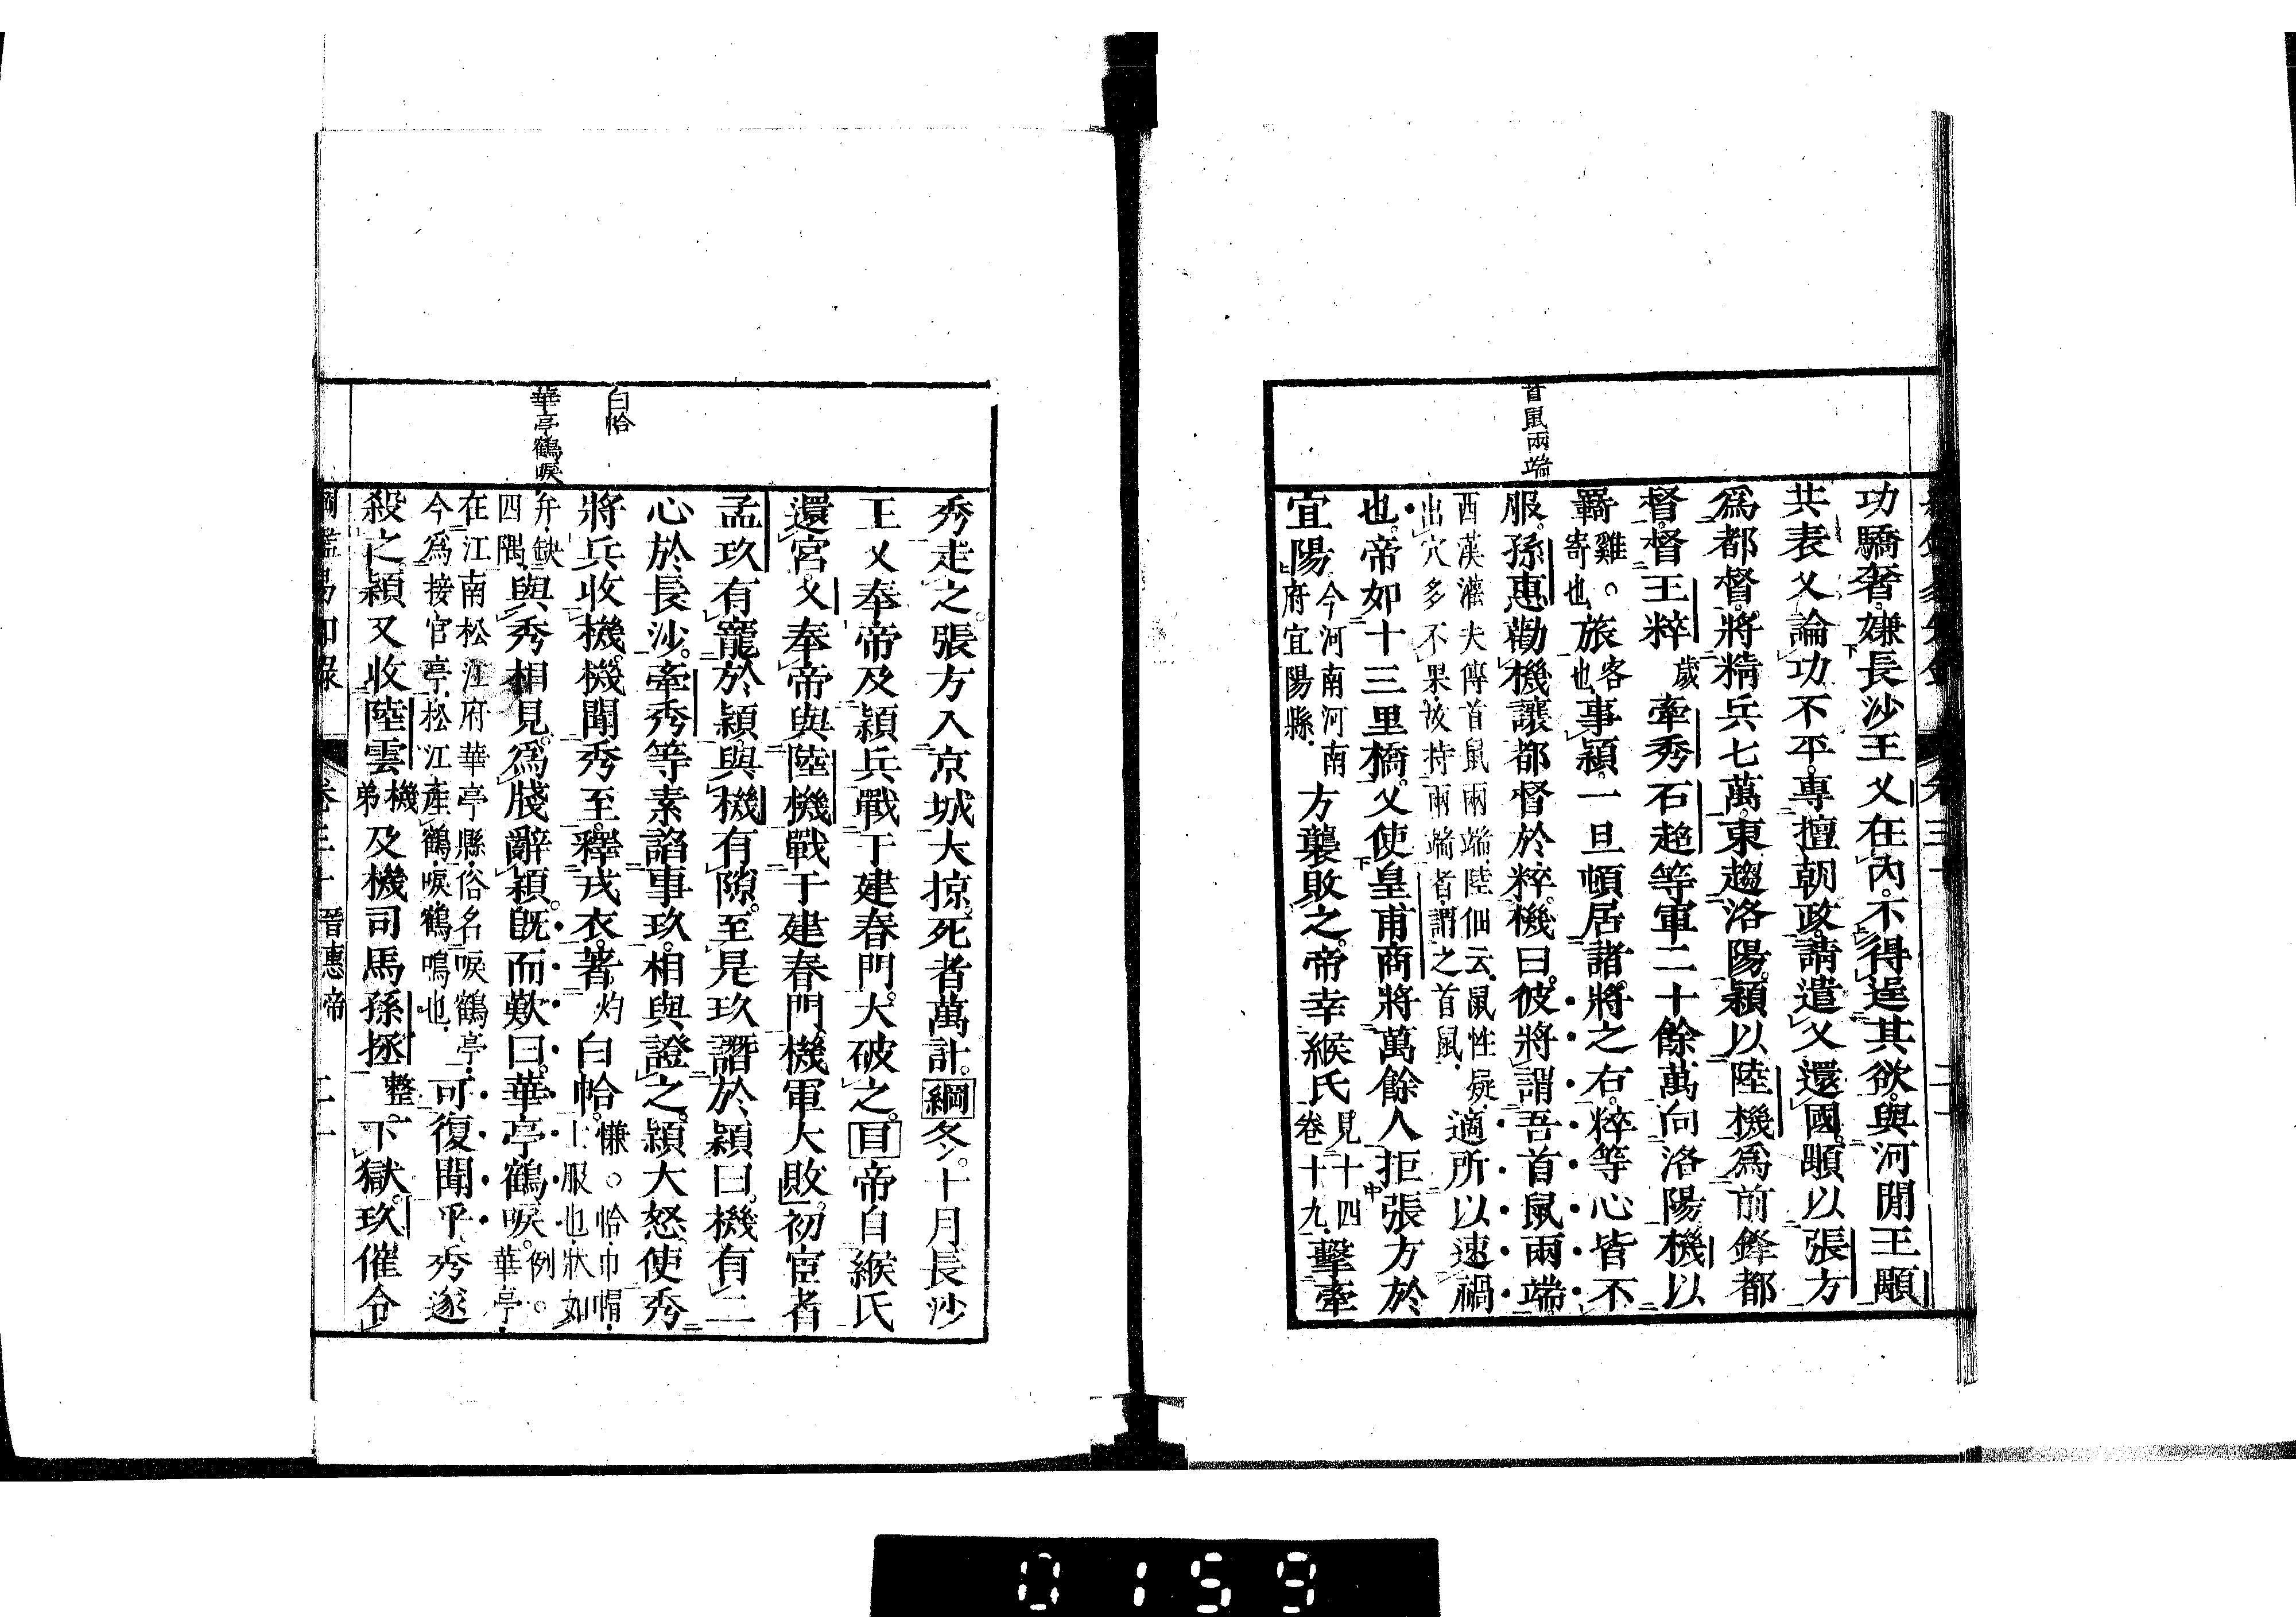 首鼠兩端
功驕奢嫌長沙王乂在內不得逞其欲與河閒王顒
共表乂論功不平專擅朝政請遣乂還國顒以張方
爲都督將精兵七萬東趨洛陽穎以陸機爲前鋒都
督督王粹歲牽秀石超等軍二十餘萬向洛陽機以
羈雞○寄也旅客也事穎一旦頓居諸將之右粹等心皆不
服孫惠勸機讓都督於粹機曰彼將謂吾首鼠兩端
西漢灌夫傳首鼠兩端陸佃云鼠性疑出穴多不果故持兩端者謂之首鼠適所以速禍
也帝如十三里橋乂使皇甫商將萬餘人拒張方於
宜陽今河南河南府宜陽縣方襲敗之帝幸緱氏見十四卷十九擊牽
白帢
華亭鶴唳
秀走之張方入京城大掠死者萬計綱冬十月長沙
王乂奉帝及穎兵戰于建春門大破之目帝自緱氏
還宮乂奉帝與陸機戰于建春門機軍大敗初宦者
孟玖有寵於穎與機有隙至是玖譖於穎曰機有二
心於長沙牽秀等素諂事玖相與證之穎大怒使秀
將兵收機機聞秀至釋戎衣著灼白帢慊○帢巾帽士服也狀如
弁缺四隅與秀相見爲牋辭穎旣而歎曰華亭鶴唳例○華亭
在江南松江府華亭縣俗名唳鶴亭今爲接官亭松江產鶴唳鶴鳴也可復聞乎秀遂
殺之穎又收陸雲機弟及機司馬孫拯整下獄玖催令
綱鑑易知錄 卷三十 晉惠帝 二十一